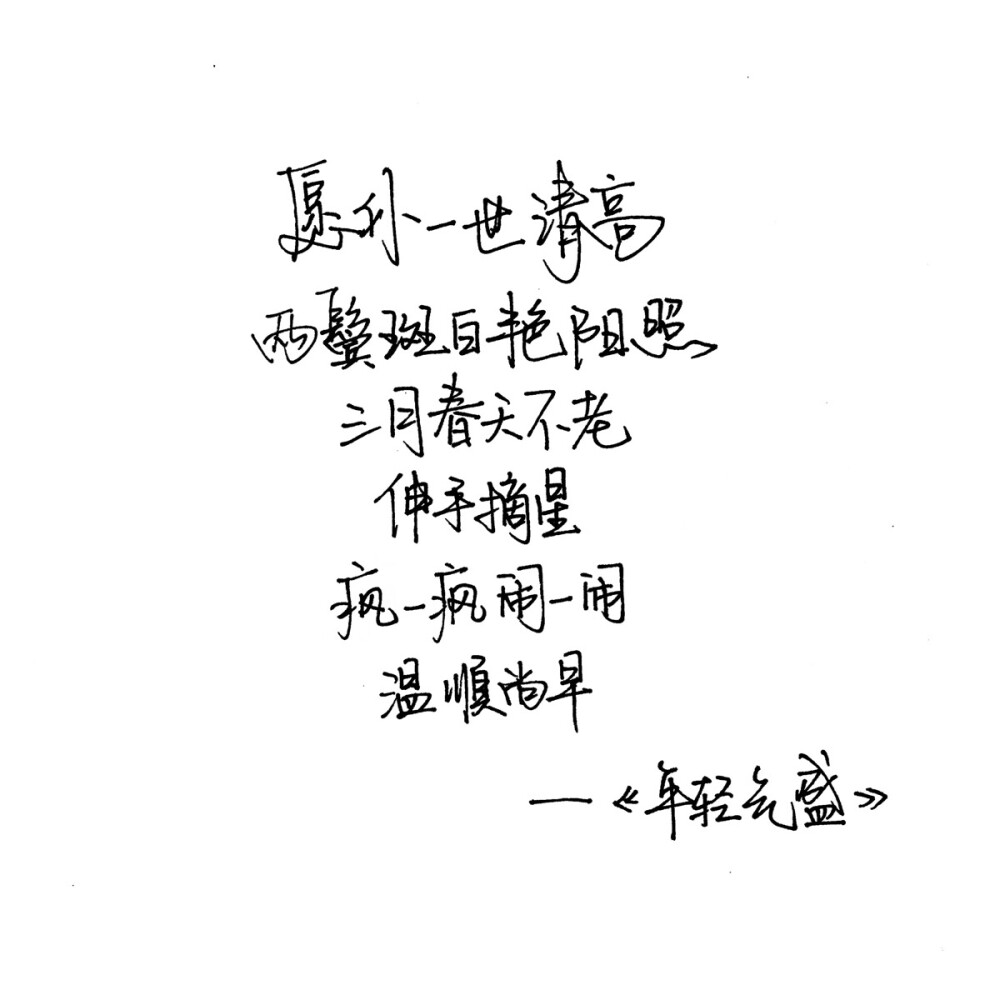 愿你一世清高
两鬓斑白艳阳照
三月春天不老
伸手摘星
疯一疯闹一闹
温顺尚早
——《年轻气盛》